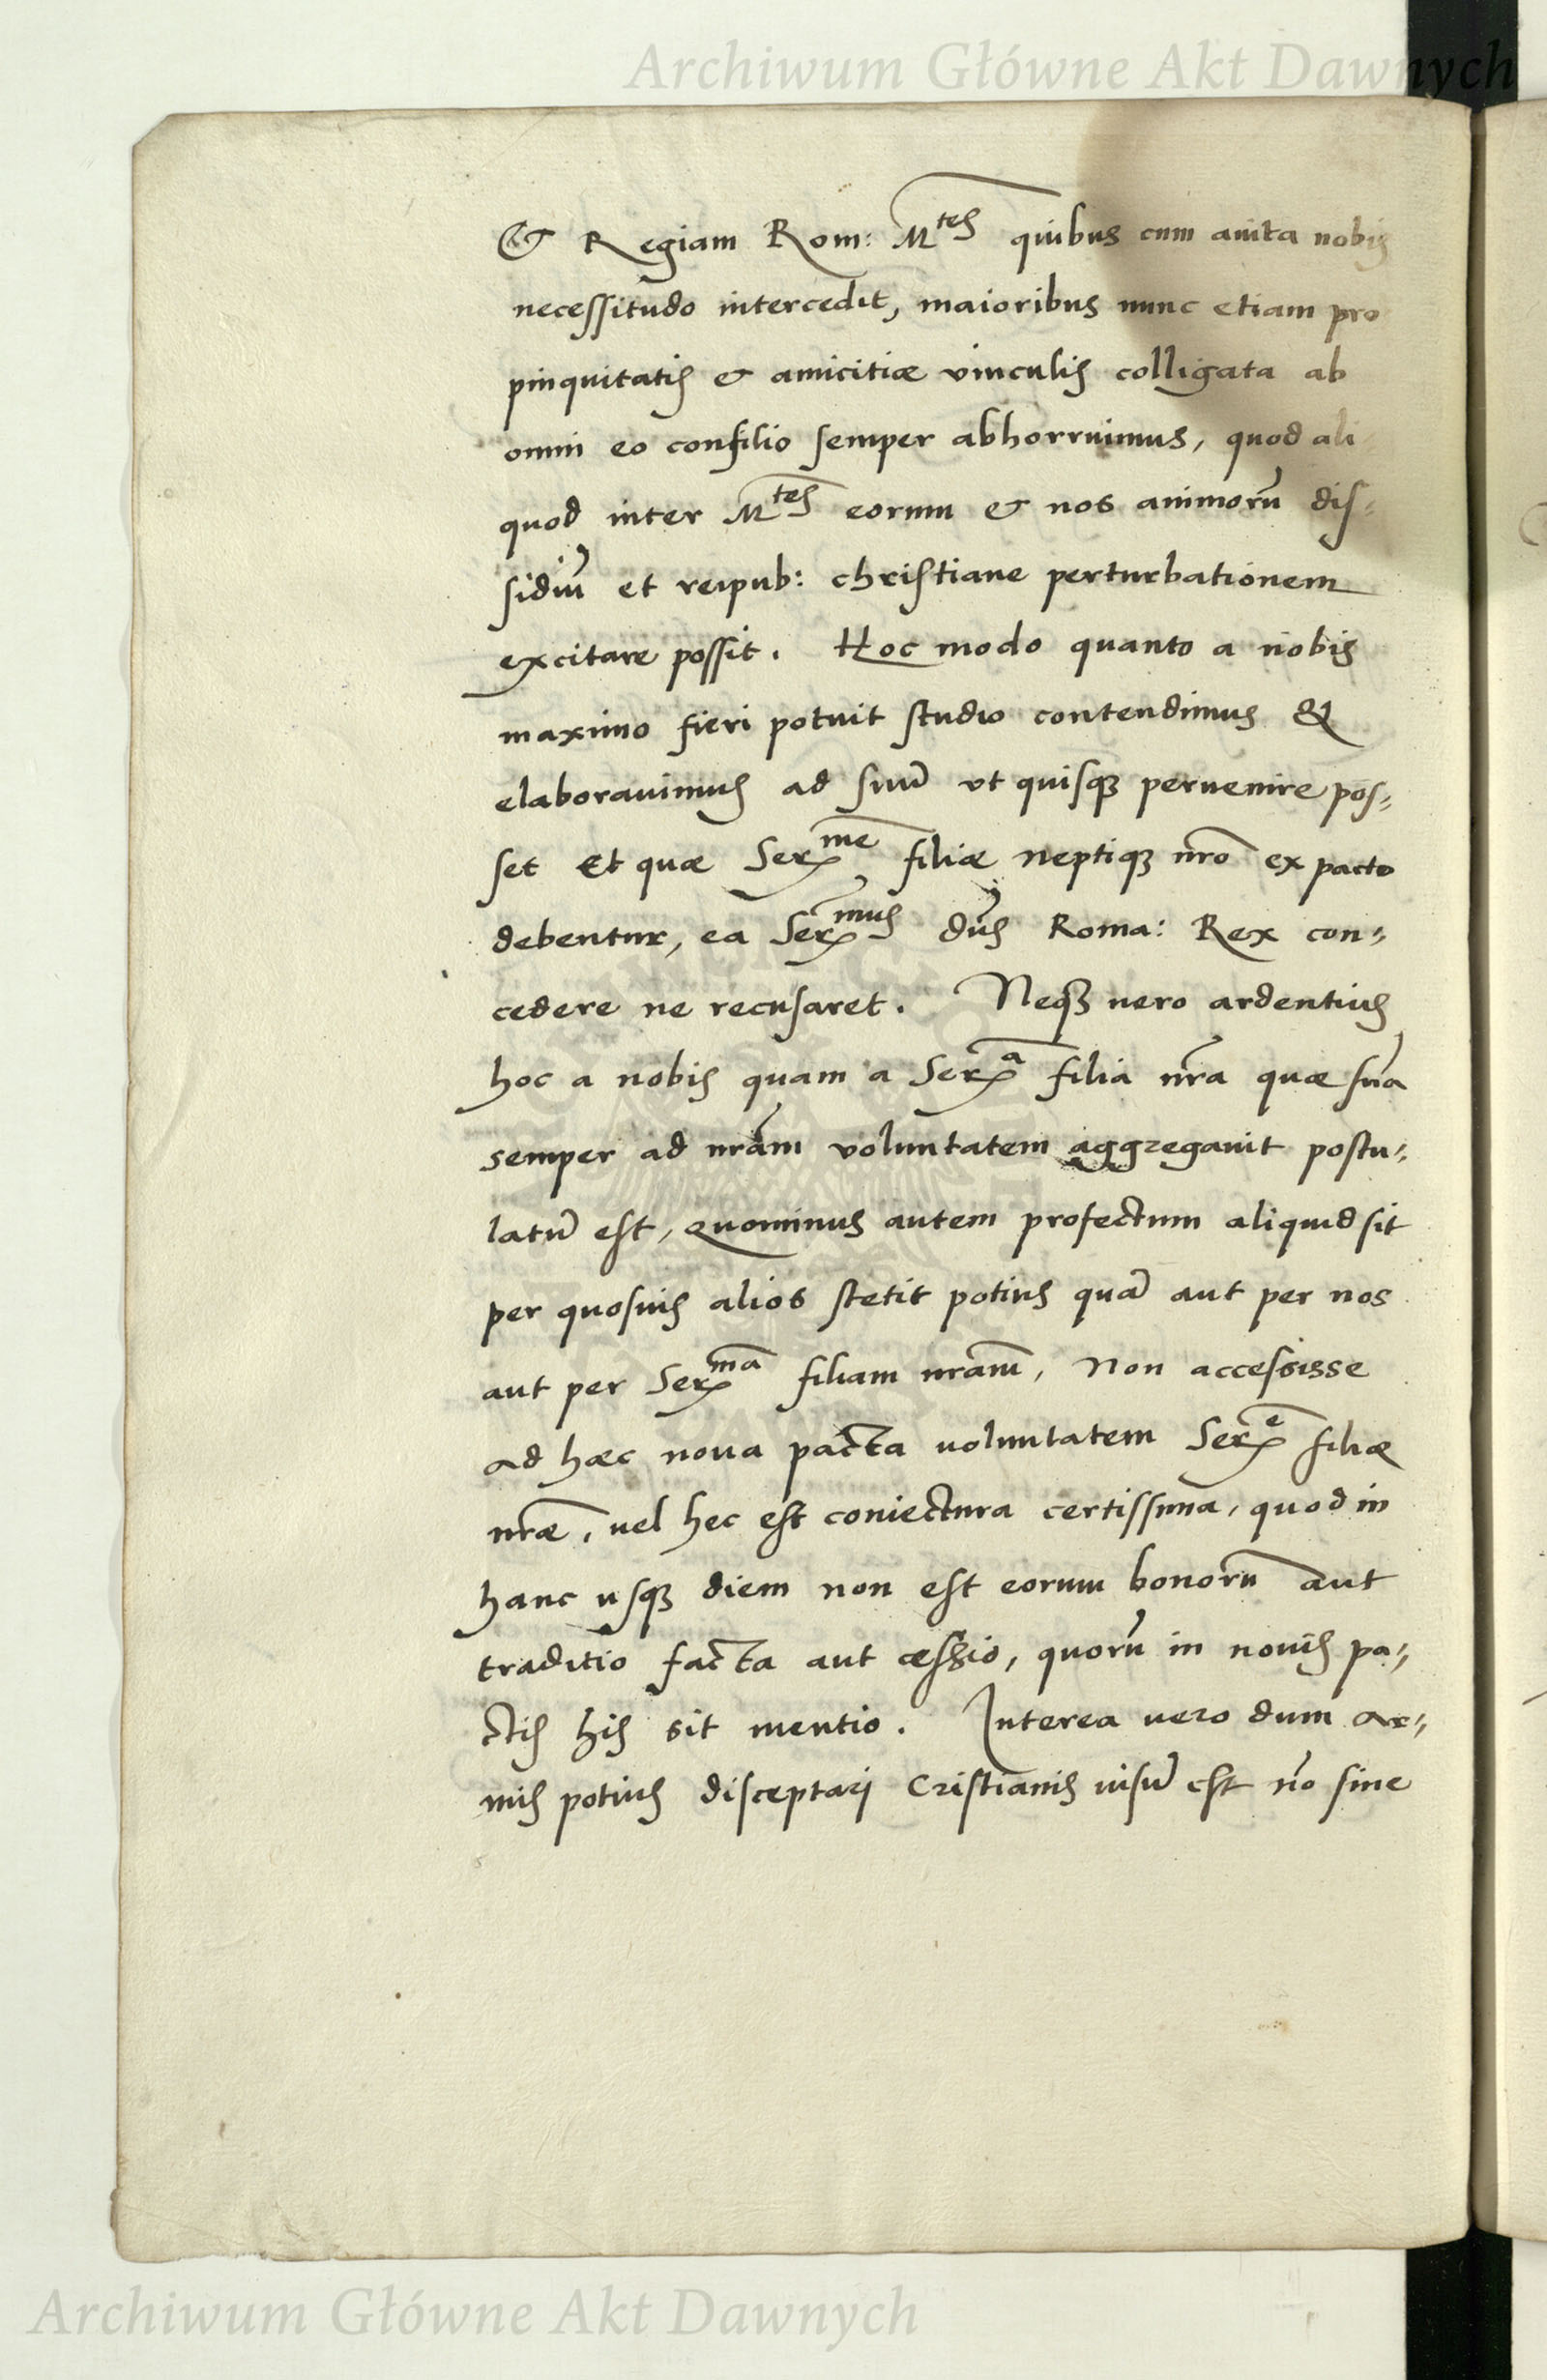 Archiwum Główne Akt Dawnych
& Regiam Rom: Mtes quibus cum auita nobis
necessitudo intercedit, maioribus nunc etiam pro
pinquitatis & amicitiæ vinculis colligata ab
omni eo consilio semper abhorruimus, quod ali
quod inter Mtes eorum & nos animorū dis=
sidiū et reipub: christiane perturbationem
excitare possit. Hoc modo quanto a nobis
maximo fieri potuit studio contendimus &
elaborauimus ad suū vt quisqꝫ peruenire pos=
set Et quæ Serme filiæ neptiqꝫ nr̄o ex pacto
debentur, ea Sermus dūs Roma: Rex con=
cedere ne recusaret. Neqꝫ uero ardentius
hoc a nobis quam a Sera filia nr̄a quæ suā
semper ad nrām voluntatem aggregauit postu=
latū est, quominus autem profectum aliquid sit
per quosuis alios stetit potius quā aut per nos
aut per Sermā filiam nrām, Non accessisse
ad hæc noua pacta uoluntatem Sere filiæ
nr̄æ, uel hec est coniectura certissima, quod in
hanc usqꝫ diem non est eorum bonorū aut
traditio facta aut cessio, quorū in nouis pa=
ctis his sit mentio. Interea uero dum ar=
mis potius disceptari Cristianis uisū est nō sine
Archiwum Główne Akt Dawnych